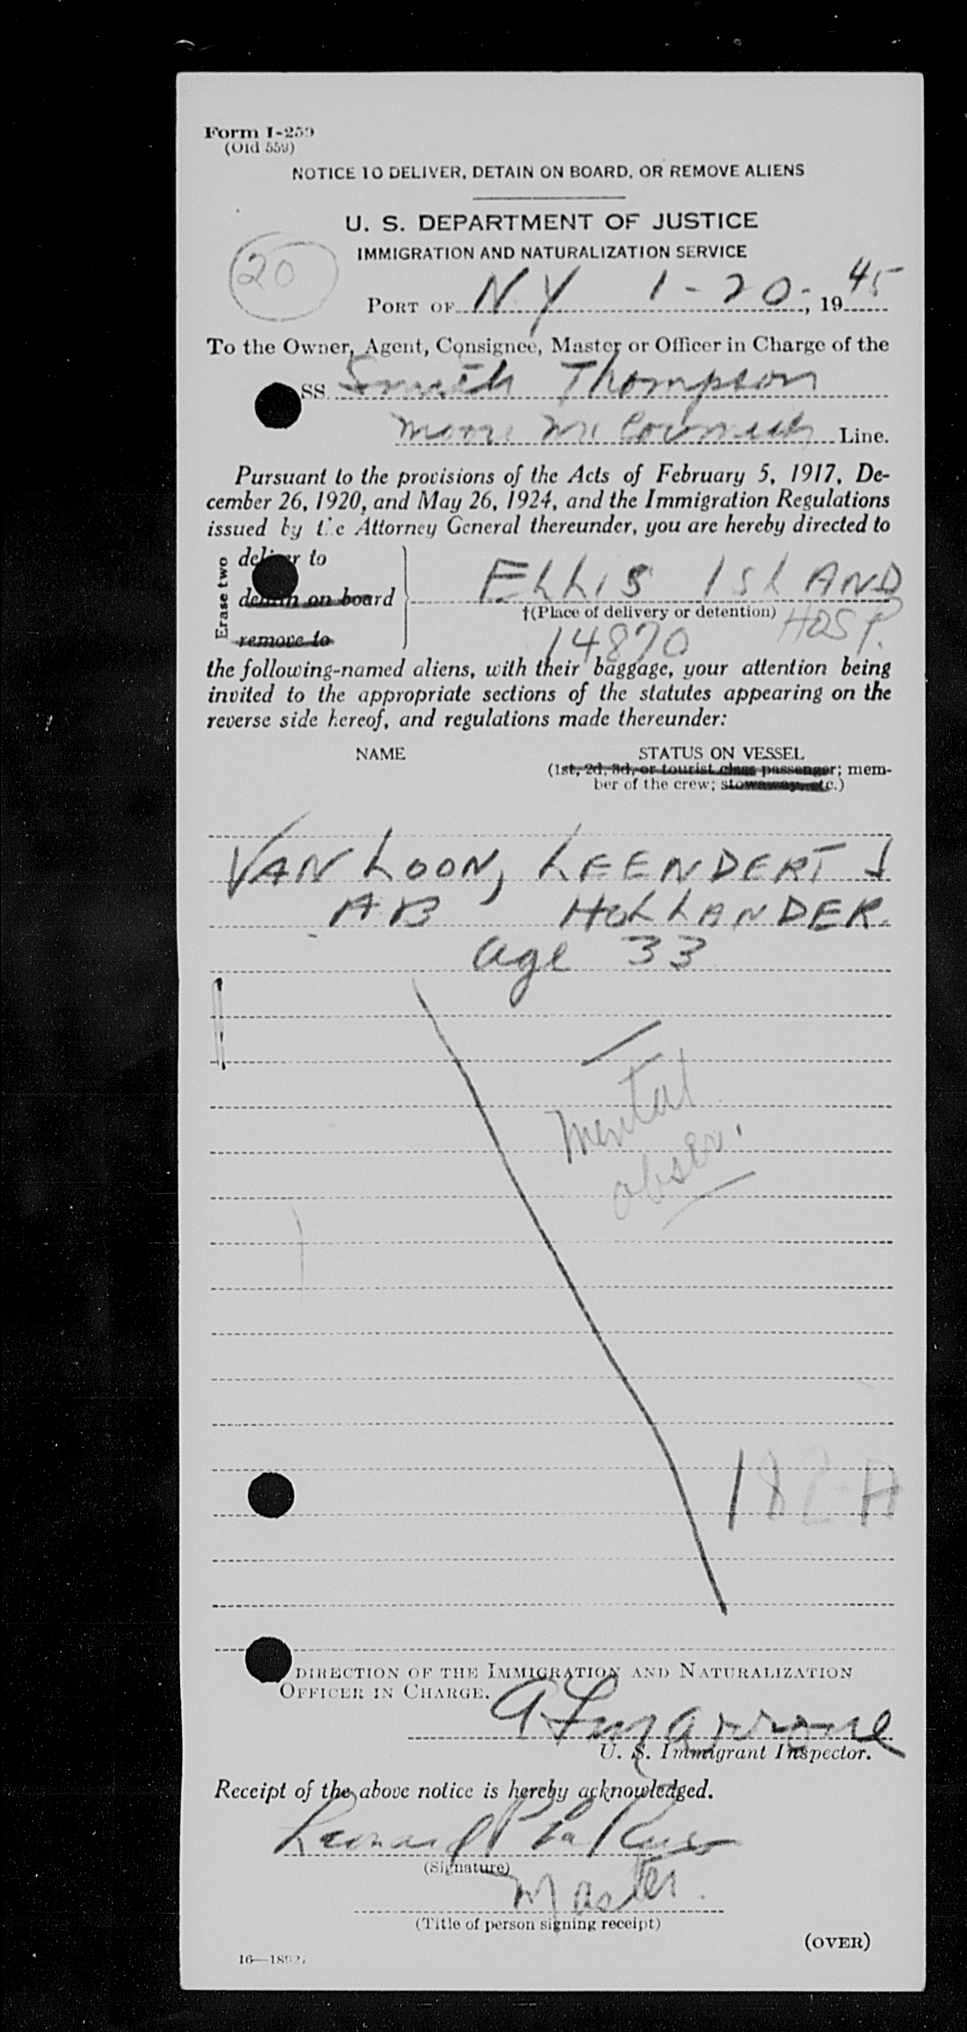 Form I-259
(Old 559)
NOTICE TO DELIVER, DETAIN ON BOARD, OR REMOVE ALIENS
U. S. DEPARTMENT OF JUSTICE
IMMIGRATION AND NATURALIZATION SERVICE
20
PORT OF N.Y 1-20-, 1945
To the Owner, Agent, Consignee, Master or Officer in Charge of the
SS Smith Thompson
Moore McCormick Line.
Pursuant to the provisions of the Acts of February 5, 1917, De-
cember 26, 1920, and May 26, 1924, and the Immigration Regulations
issued by the Attorney General thereunder, you are hereby directed to
Erase two
deliver to
detain on board
remove to
ELLIS ISLAND
†(Place of delivery or detention) HOSP.
14870
the following-named aliens, with their baggage, your attention being
invited to the appropriate sections of the statutes appearing on the
reverse side hereof, and regulations made thereunder:
NAME STATUS ON VESSEL
(1st, 2d, 3d, or tourist class passenger; mem-
ber of the crew; stowaway, etc.)
VAN LOON, LEENDERT J
AB HOLLANDER.
age 33
mental
obser.
182-A
DIRECTION OF THE IMMIGRATION AND NATURALIZATION
OFFICER IN CHARGE.
U. S. Immigrant Inspector.
Receipt of the above notice is hereby acknowledged.
Leonard
(Signature)
Master.
(Title of person signing receipt)
(OVER)